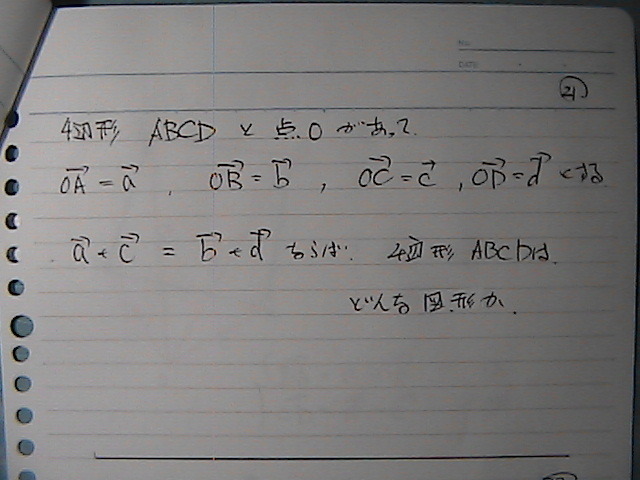 No.
DATE
㉑
4辺形 ABCD と 点O があって、
$\overrightarrow{OA} = \vec{a}$ , $\overrightarrow{OB} = \vec{b}$ , $\overrightarrow{OC} = \vec{c}$ , $\overrightarrow{OD} = \vec{d}$ とする
$\vec{a} + \vec{c} = \vec{b} + \vec{d}$ ならば 4辺形 ABCDは
どんな図形か.